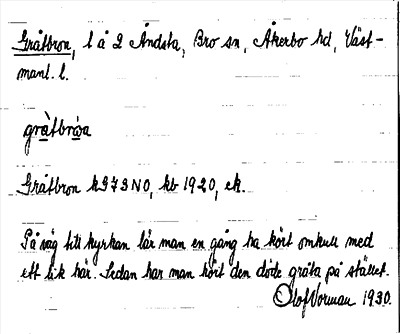 Gråtbron, l å 2 Åndsta, Bro sn, Åkerbo hd, Väst-
manl. l.
gràtbrωa
Gråtbron k 973 NO, kb 1920, ek.
På väg till kyrkan lär man en gång ha kört omkull med
ett lik här. Sedan har man kört den döde gråta på stället.
Olof Norman 1930.